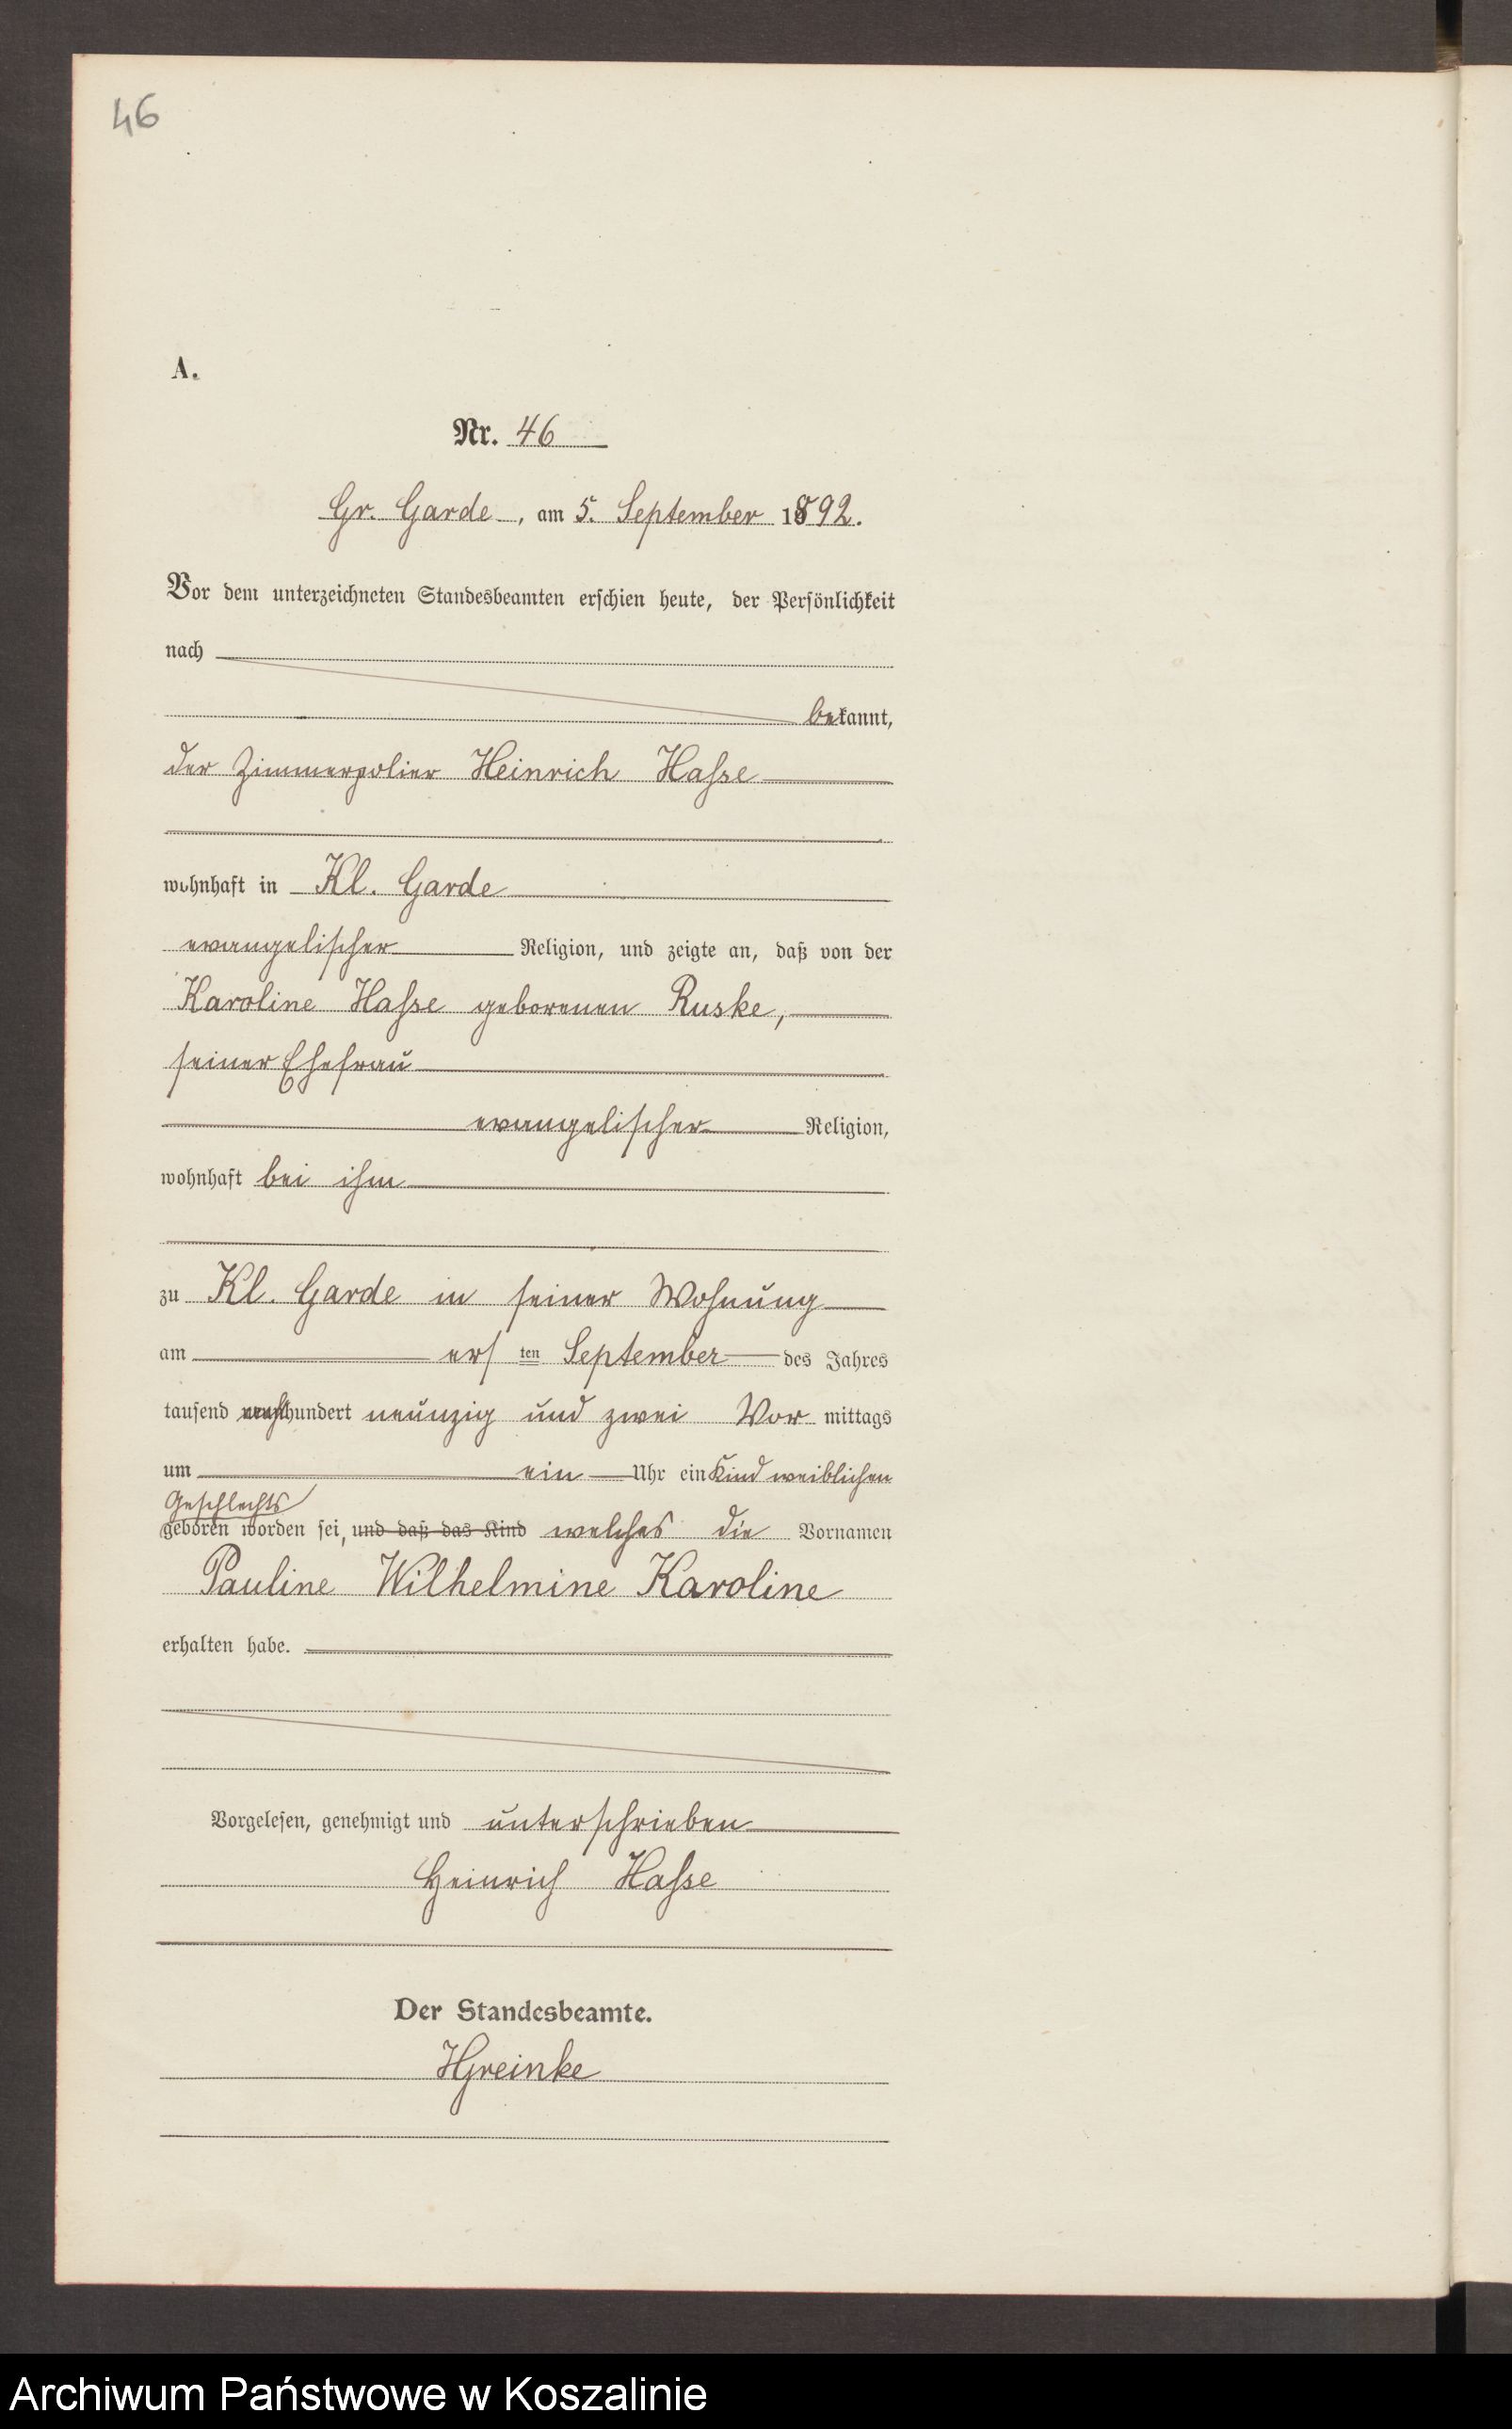 46
A.
Nr. 46
Gr. Garde, am 5. September 1892.
Vor dem unterzeichneten Standesbeamten erschien heute, der Persönlichkeit
nach
bekannt,
der Zimmerpolier Heinrich Hasse
wohnhaft in Kl. Garde
evangelischer Religion, und zeigte an, daß von der
Karoline Hasse geborenen Ruske,
seiner Ehefrau
evangelischer Religion,
wohnhaft bei ihm
zu Kl. Garde in seiner Wohnung
am ersten September des Jahres
tausend achthundert neunzig und zwei Vor mittags
um ein Uhr ein Kind weiblichen
Geschlechts
geboren worden sei, und daß das Kind welches die Vornamen
Pauline Wilhelmine Karoline
erhalten habe.
Vorgelesen, genehmigt und unterschrieben
Heinrich Hasse
Der Standesbeamte.
HGreinke
Archiwum Państwowe w Koszalinie